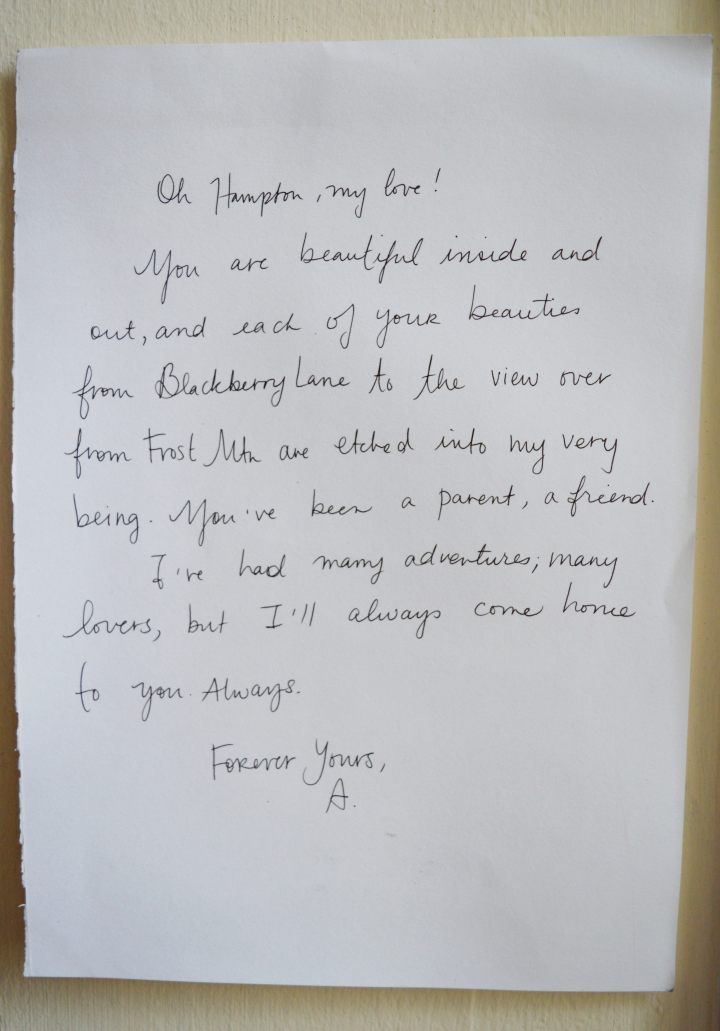 Oh Hampton, my love!
You are beautiful inside and
out, and each of your beauties
from Blackberry Lane to the view over
from Frost Mtn are etched into my very
being. You've been a parent, a friend.
I've had many adventures; many
lovers, but I'll always come home
to you. Always.
Forever Yours,
A.